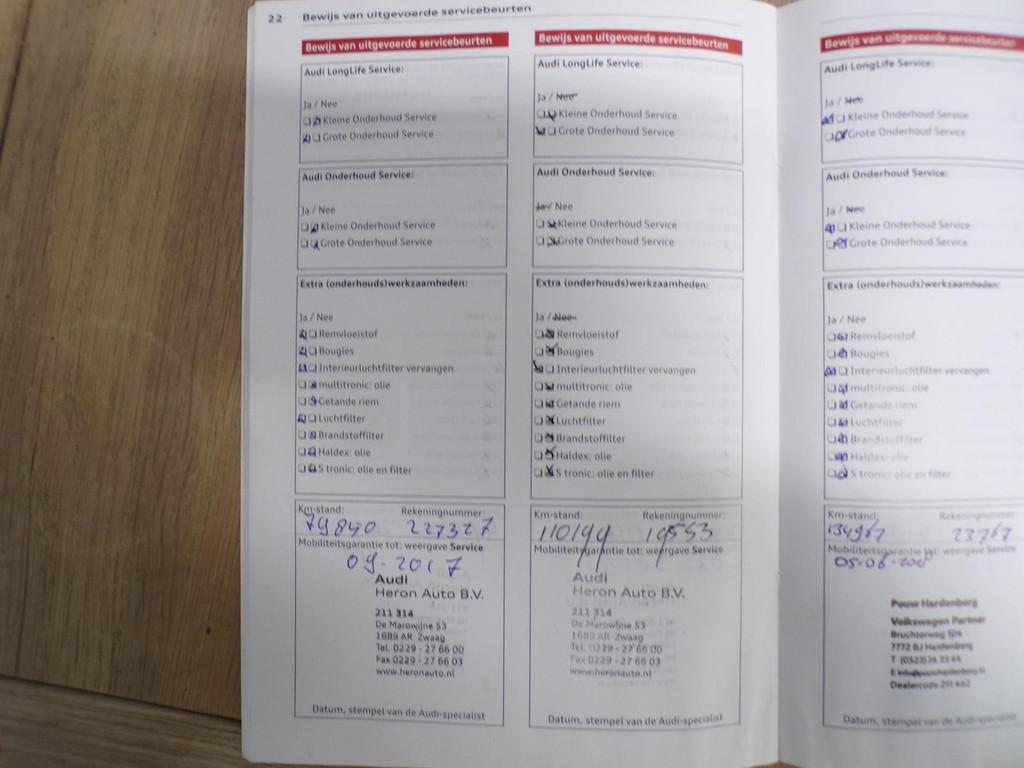 22 Bewijs van uitgevoerde servicebeurten
Bewijs van uitgevoerde servicebeurten
Audi LongLife Service:
Ja / Nee
Kleine Onderhoud Service
Grote Onderhoud Service
Audi Onderhoud Service:
Ja / Nee
Kleine Onderhoud Service
Grote Onderhoud Service
Extra (onderhouds)werkzaamheden:
Ja / Nee
Remvloeistof
Bougies
Interieurluchtfilter vervangen
multitronic: olie
Getande riem
Luchtfilter
Brandstoffilter
Haldex: olie
S tronic: olie en filter
Km-stand: Rekeningnummer:
79840 227327
Mobiliteitsgarantie tot: weergave Service
09-2017
Audi
Heron Auto B.V.
211 314
De Marowijne 53
1689 AR Zwaag
Tel. 0229 - 27 66 00
Fax 0229 - 27 66 03
www.heronauto.nl
Datum, stempel van de Audi-specialist
Bewijs van uitgevoerde servicebeurten
Audi LongLife Service:
Ja / Nee
Kleine Onderhoud Service
Grote Onderhoud Service
Audi Onderhoud Service:
Ja / Nee
Kleine Onderhoud Service
Grote Onderhoud Service
Extra (onderhouds)werkzaamheden:
Ja / Nee
Remvloeistof
Bougies
Interieurluchtfilter vervangen
multitronic: olie
Getande riem
Luchtfilter
Brandstoffilter
Haldex: olie
S tronic: olie en filter
Km-stand: Rekeningnummer:
110199 19553
Mobiliteitsgarantie tot: weergave Service
Audi
Heron Auto B.V.
211 314
De Marowijne 53
1689 AR Zwaag
Tel. 0229 - 27 66 00
Fax 0229 - 27 66 03
www.heronauto.nl
Datum, stempel van de Audi-specialist
Bewijs van uitgevoerde servicebeurten
Audi LongLife Service:
Ja / Nee
Kleine Onderhoud Service
Grote Onderhoud Service
Audi Onderhoud Service:
Ja / Nee
Kleine Onderhoud Service
Grote Onderhoud Service
Extra (onderhouds)werkzaamheden:
Ja / Nee
Remvloeistof
Bougies
Interieurluchtfilter vervangen
multitronic: olie
Getande riem
Luchtfilter
Brandstoffilter
Haldex: olie
S tronic: olie en filter
Km-stand: Rekeningnummer:
134967 23767
Mobiliteitsgarantie tot: weergave Service
Pouw Hardenberg
Volkswagen Partner
Bruchterweg 104
7772 BJ Hardenberg
T (0523) 26 33 44
E info@pouwhardenberg.nl
Dealercode 211 462
Datum, stempel van de Audi-specialist